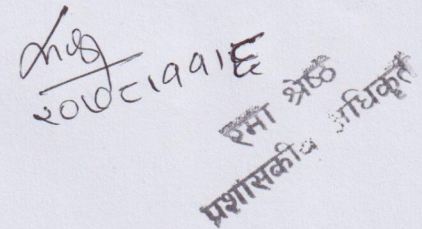 २०७८।११।६
रमा श्रेष्ठ
प्रशासकीय अधिकृत